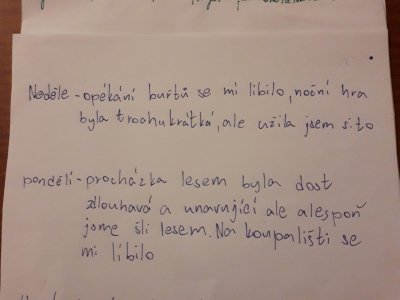 Neděle - opékání buřtů se mi líbilo, noční hra
byla troohukrátká, ale užila jsem si to
pondělí - procházka lesem byla dost
zdlouhavá a unavující ale alespoň
jsme šli lesem. Na koupališti se
mi líbilo